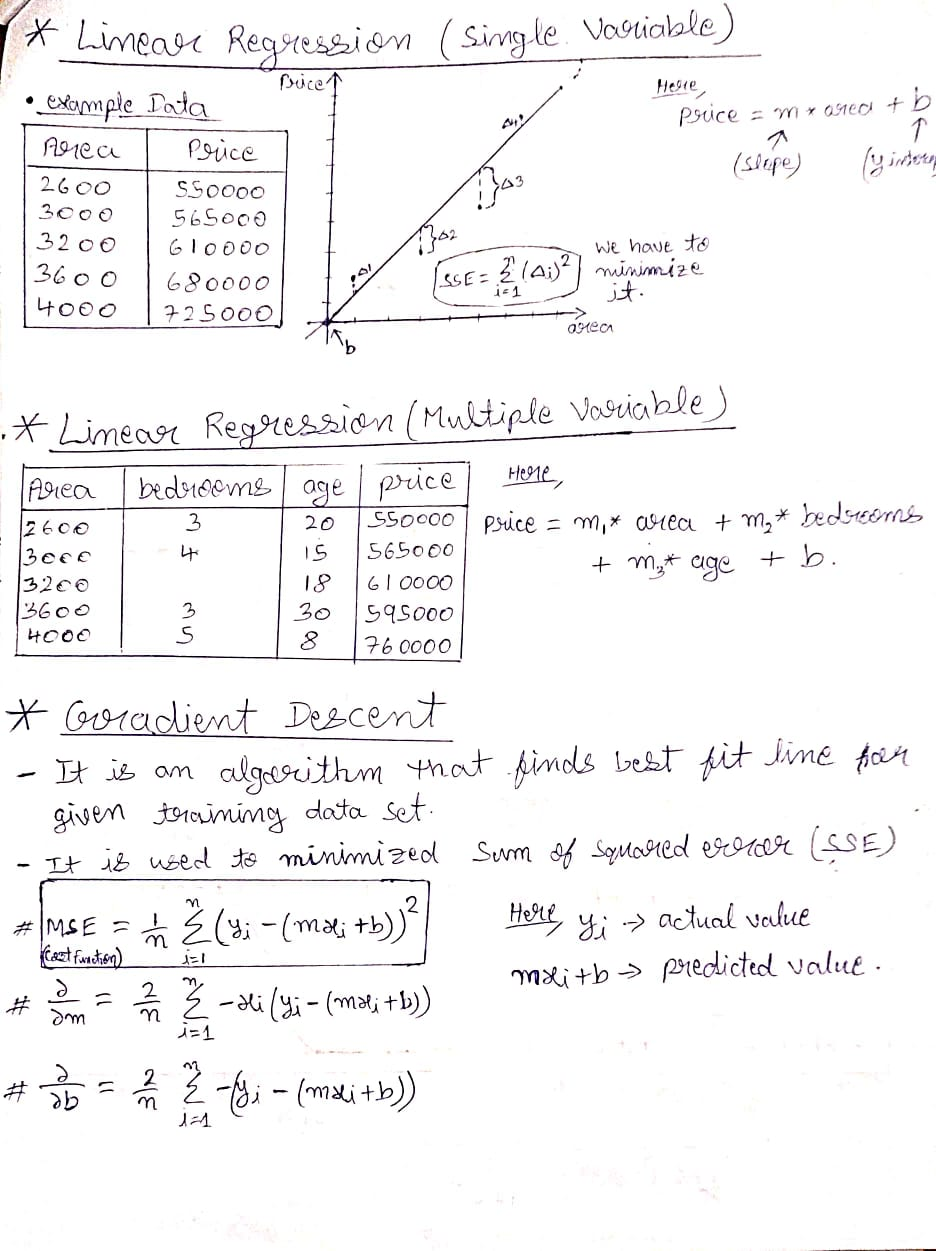 * Linear Regression (Single Variable)
• example Data
Area Price
2600 550000
3000 565000
3200 610000
3600 680000
4000 725000
Price
Δ1
Δ2
Δ3
b
area
SSE = Σ_{i=1}^{n} (Δi)²
we have to
minimize
it.
Here,
Price = m * area + b
(slope)
* Linear Regression (Multiple Variable)
Area bedrooms age price
2600 3 20 550000
3000 4 15 565000
3200 18 610000
3600 3 30 595000
4000 5 8 760000
Here,
price = m₁* area + m₂* bedrooms
+ m₃* age + b.
* Gradient Descent
- It is an algorithm that finds best fit line for
given training data set.
- It is used to minimized Sum of squared error (SSE)
# MSE = 1/n Σ_{i=1}^{n} (yi - (mxi + b))²
(Cost Function)
Here, yi → actual value
mxi + b → predicted value.
# ∂/∂m = 2/n Σ_{i=1}^{n} -xi (yi - (mxi + b))
# ∂/∂b = 2/n Σ_{i=1}^{n} -(yi - (mxi + b))